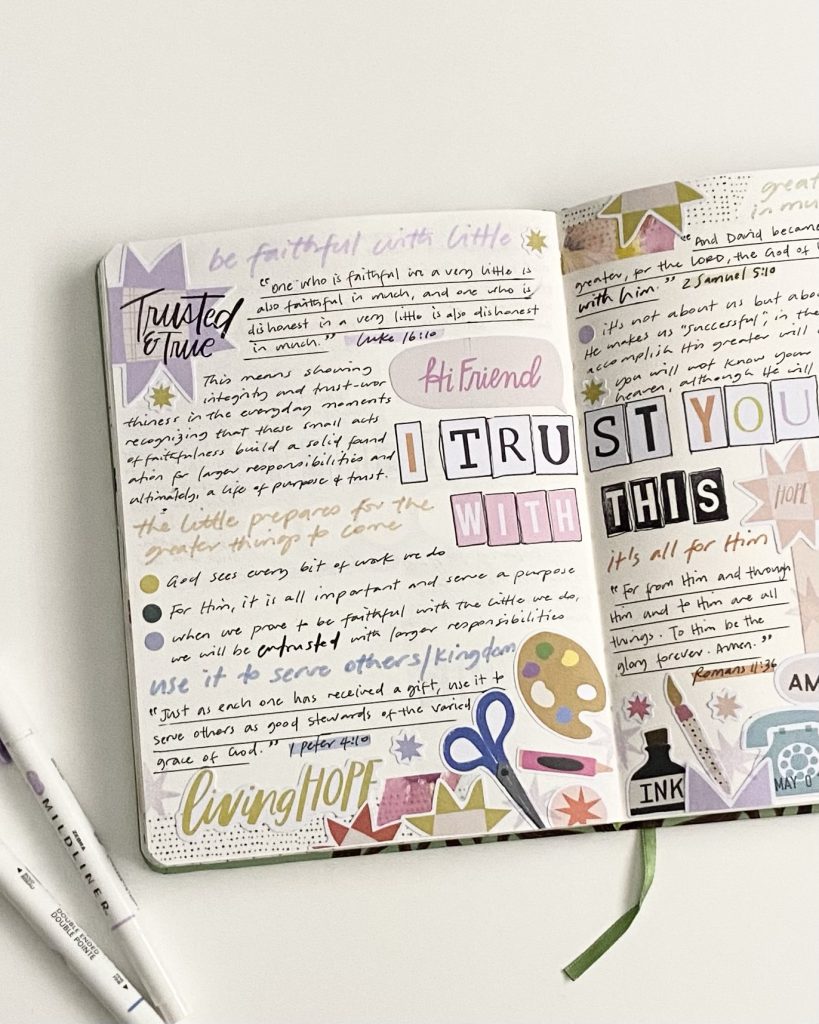 be faithful with little
Trusted
& True
"One who is faithful in a very little is
also faithful in much, and one who is
dishonest in a very little is also dishonest
in much." Luke 16:10
Hi Friend
This means showing
integrity and trust-wor
thiness in the everyday moments
recognizing that these small acts
of faithfulness build a solid found
ation for larger responsibilities and
ultimately, a life of purpose & trust.
I TRUST YOU
WITH THIS
the little prepares for the
greater things to come
God sees every bit of work we do
For Him, it is all important and serve a purpose
when we prove to be faithful with the little we do,
we will be entrusted with larger responsibilities
use it to serve others/kingdom
"Just as each one has received a gift, use it to
serve others as good stewards of the varied
grace of God." 1 Peter 4:10
living HOPE
great
in mu
"And David became
greater, for the LORD, the God of
with him." 2 Samuel 5:10
it's not about us but abou
He makes us "successful", in the
accomplish His greater will
you will not know your
heaven, although He will
HOPE
it's all for Him
"For from Him and through
Him and to Him are all
things. To Him be the
glory forever. Amen."
Romans 11:36
AM
INK
MAY 0
ZEBRA
MILDLINER
DOUBLE ENDED
DOUBLE POINTE